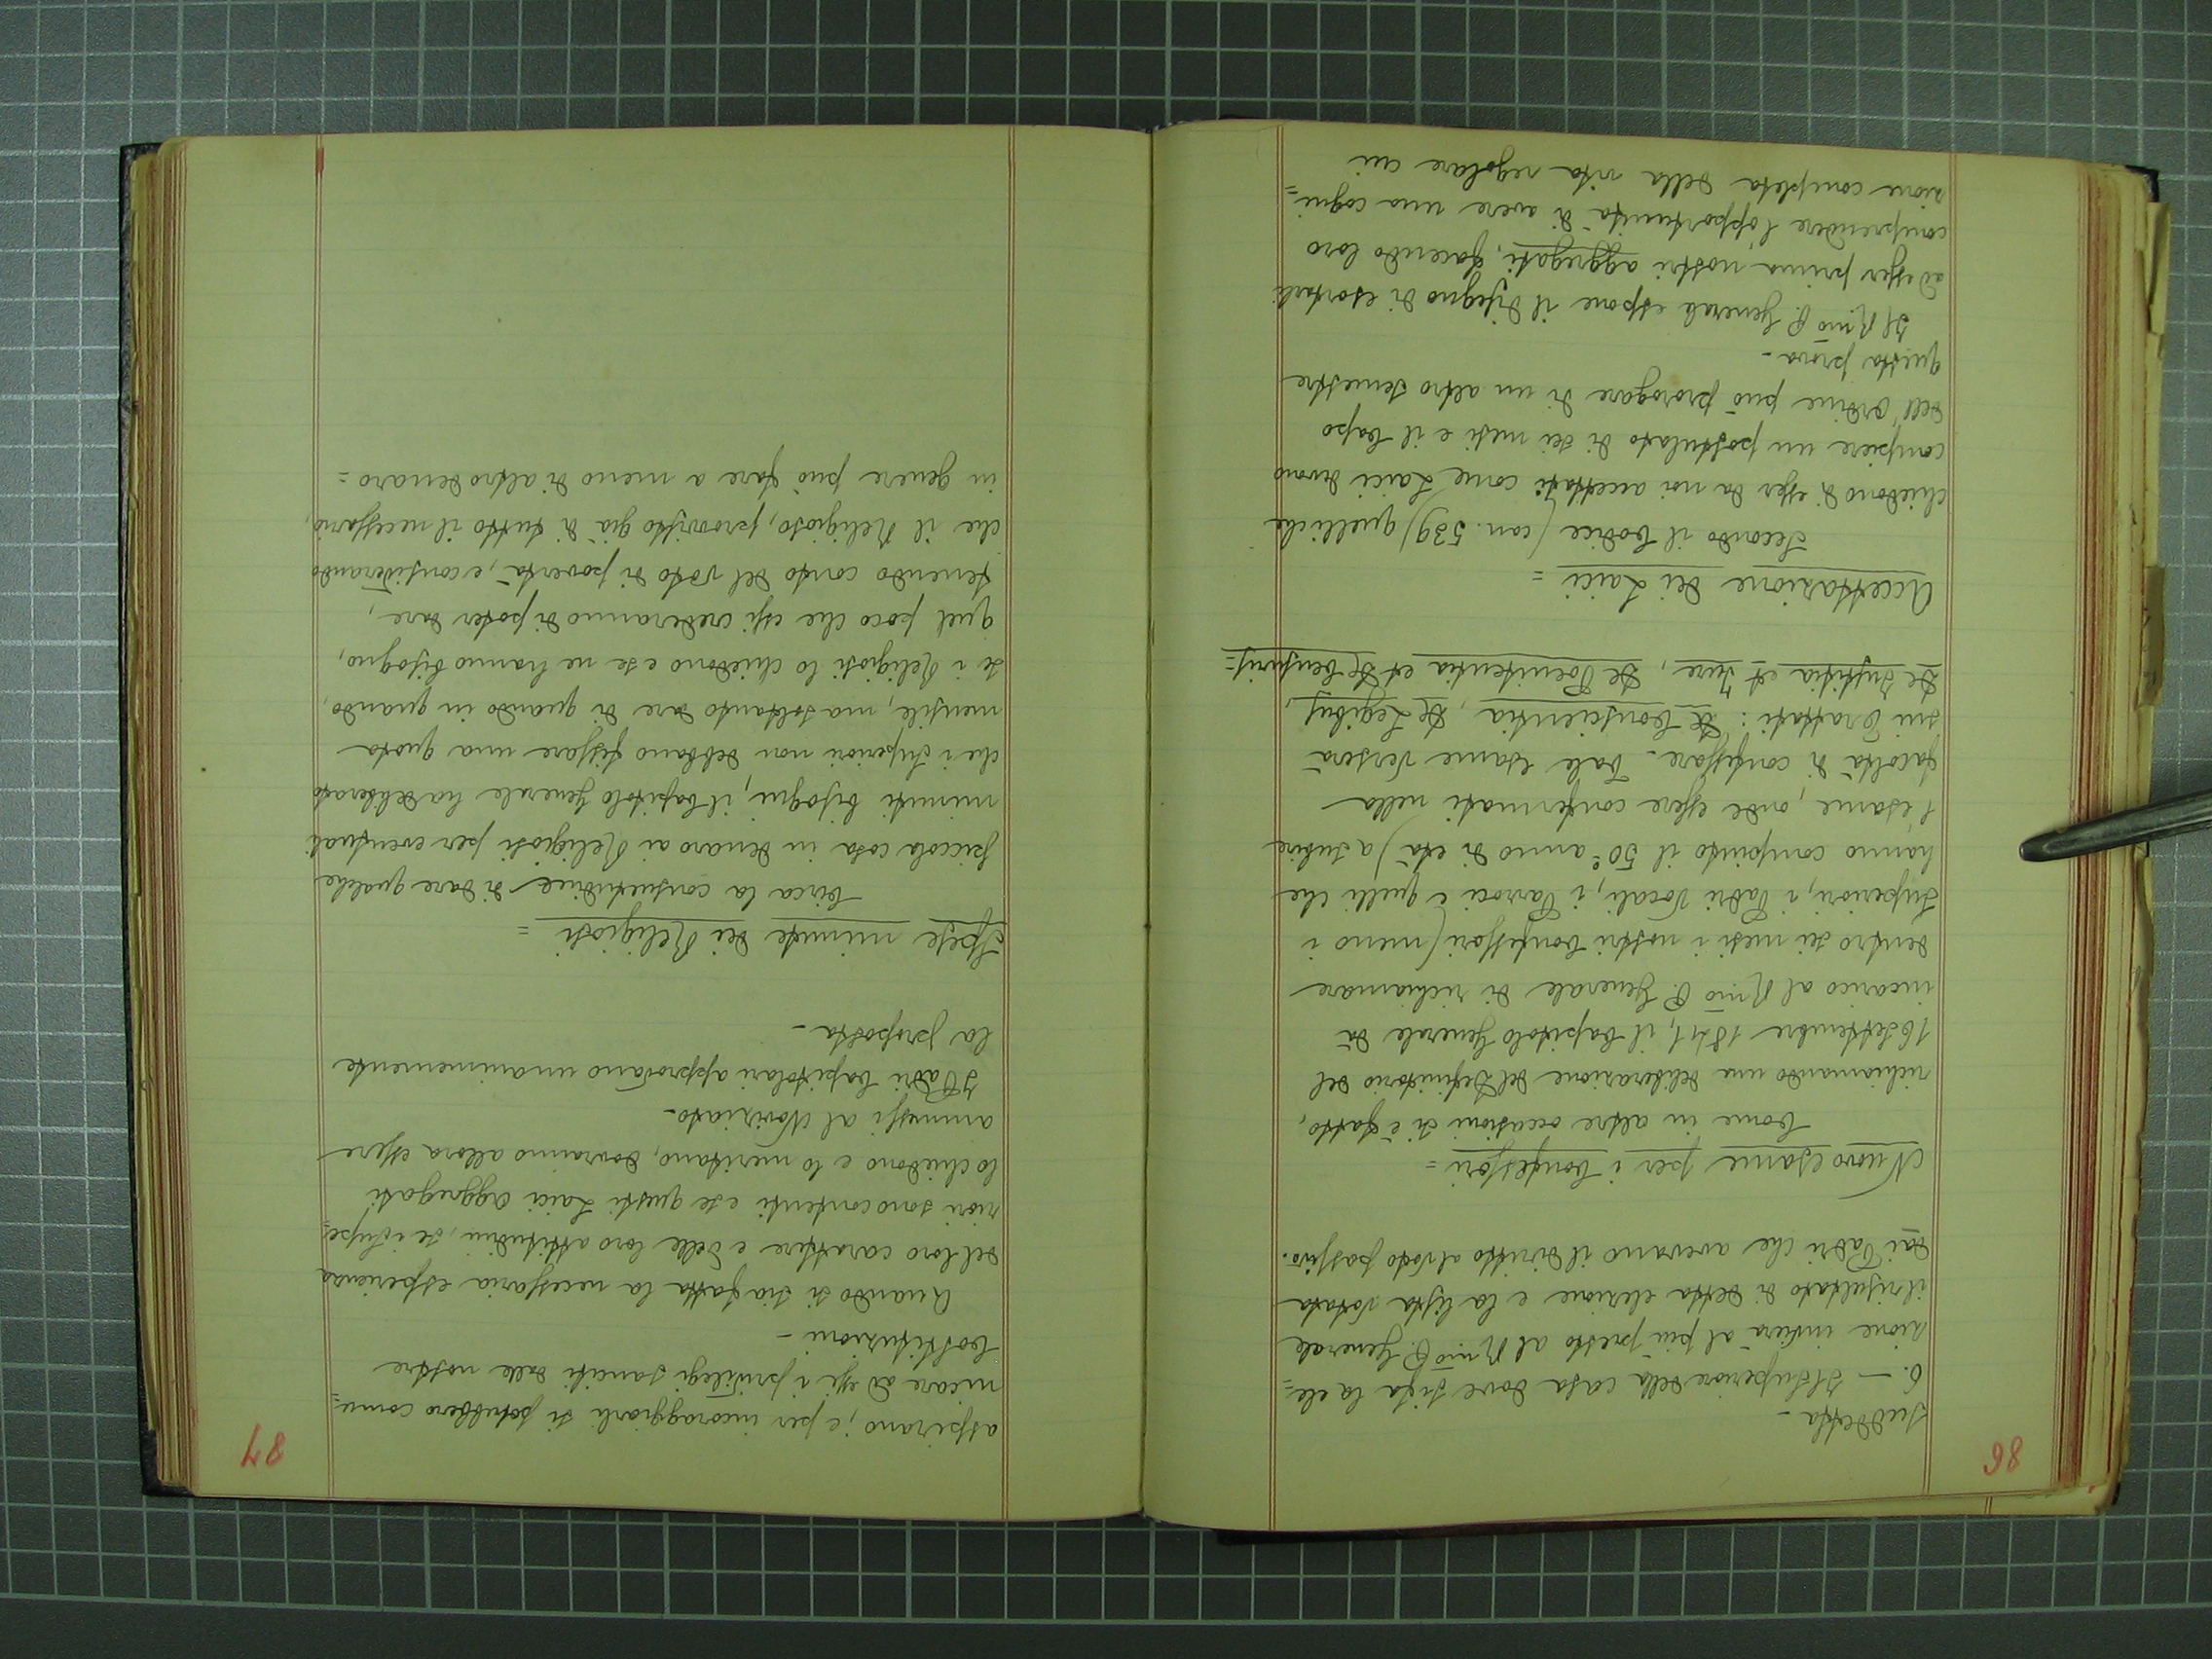 86
suddetta -
6. - Il Superiore della casa dove si fa la ele=
zione invierà al più presto al R.mo P. Generale
il risultato di detta elezione e la lista votata
dai Padri che avevano il diritto al voto passivo.
Nuovo esame per i Confessori =
Come in altre occasioni si è fatto,
richiamando una deliberazione del Definitorio del
16 settembre 1841, il Capitolo Generale dà
incarico al R.mo P. Generale di richiamare
dentro sei mesi i nostri Confessori (meno i
Superiori, i Padri Vocali, i Parroci e quelli che
hanno compiuto il 50º anno di età) a subire
l'esame, onde essere confermati nella
facoltà di confessare. - Tale esame verserà
sui trattati: De Conscientia, De Legibus,
De Justitia et Jure, De Poenitentia et De Censuris =
Accettazione dei Laici =
Secondo il Codice (can. 539) quelli che
chiedono di esser da noi accettati come Laici devono
compiere un postulato di sei mesi e il Capo
dell'Ordine può prorogare di un altro semestre
questa prova -
Il R.mo P. Generale espone il disegno di esortarli
ad esser prima nostri aggregati, facendo loro
comprendere l'opportunità di avere una cogni=
zione completa della vita regolare cui
87
aspirano; e per incoraggiarli si potrebbero comu=
nicare ad essi i privilegi sanciti dalle nostre
Costituzioni -
Quando si sia fatta la necessaria esperienza
del loro carattere e delle loro attitudini, se i Supe=
riori sono contenti e se questi Laici Aggregati
lo chiedono e lo meritano, dovranno allora essere
ammessi al Noviziato -
I Padri Capitolari approvano unanimemente
la proposta -
Spese minute dei Religiosi =
Circa la consuetudine di dare qualche
piccola cosa in denaro ai Religiosi per eventuali
minuti bisogni, il Capitolo Generale ha deliberato
che i Superiori non debbano fissare una quota
mensile, ma soltanto dare di quando in quando,
se i Religiosi lo chiedono e se ne hanno bisogno,
quel poco che essi crederanno di poter dare,
tenendo conto del voto di povertà, e considerando
che il Religioso, provvisto già di tutto il necessario,
in genere può fare a meno di altro denaro =